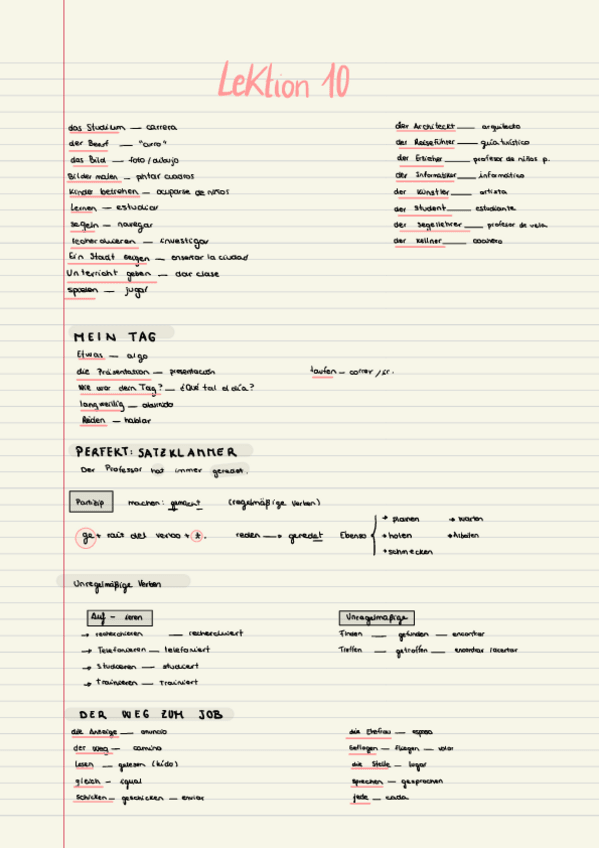 Lektion 10
das Studium — carrera
der Beruf — "curro"
das Bild — foto / dibujo
Bilder malen — pintar cuadros
Kinder betrehen — ocuparse de niños
Lernen — estudiar
segeln — navegar
recherchieren — investigar
Ein Stadt zeigen — enseñar la ciudad
Unterricht geben — dar clase
spielen — jugar
der Architeckt — arquitecto
der Reiseführer — guía turístico
der Erzieher — profesor de niños p.
der Informatiker — informático
der Künstler — artista
der Student — estudiante
der Segellehrer — profesor de vela
der Kellner — cochero
MEIN TAG
Etwas — algo
die Präsentation — presentación
Wie war dein Tag? — ¿Qué tal el día?
langweillig — aburrido
Reden — hablar
laufen — correr / ir.
PERFEKT: SATZKLAMMER
Der Professor hat immer geredet.
Partizip machen: gemacht (regelmäßige Verben)
ge + raíz del verbo + t. reden → geredet Ebenso
→ planen → warten
→ holen → Arbeiten
→ schmecken
Unregelmäßige Verben
Auf - ieren
→ recherchieren — recherchiert
→ Telefonieren — telefoniert
→ Studieren — studiert
→ Trainieren — Trainiert
Unregelmäßige
Finden — gefunden — encontrar
Treffen — getroffen — encontrar / acertar
DER WEG ZUM JOB
die Anzeige — anuncio
der Weg — camino
Lesen — gelesen (leído)
gleich — igual
Schicken — geschicken — enviar
die Ehefrau — esposa
Geflogen — fliegen — volar
die Stelle — lugar
sprechen — gesprochen
jede — cada